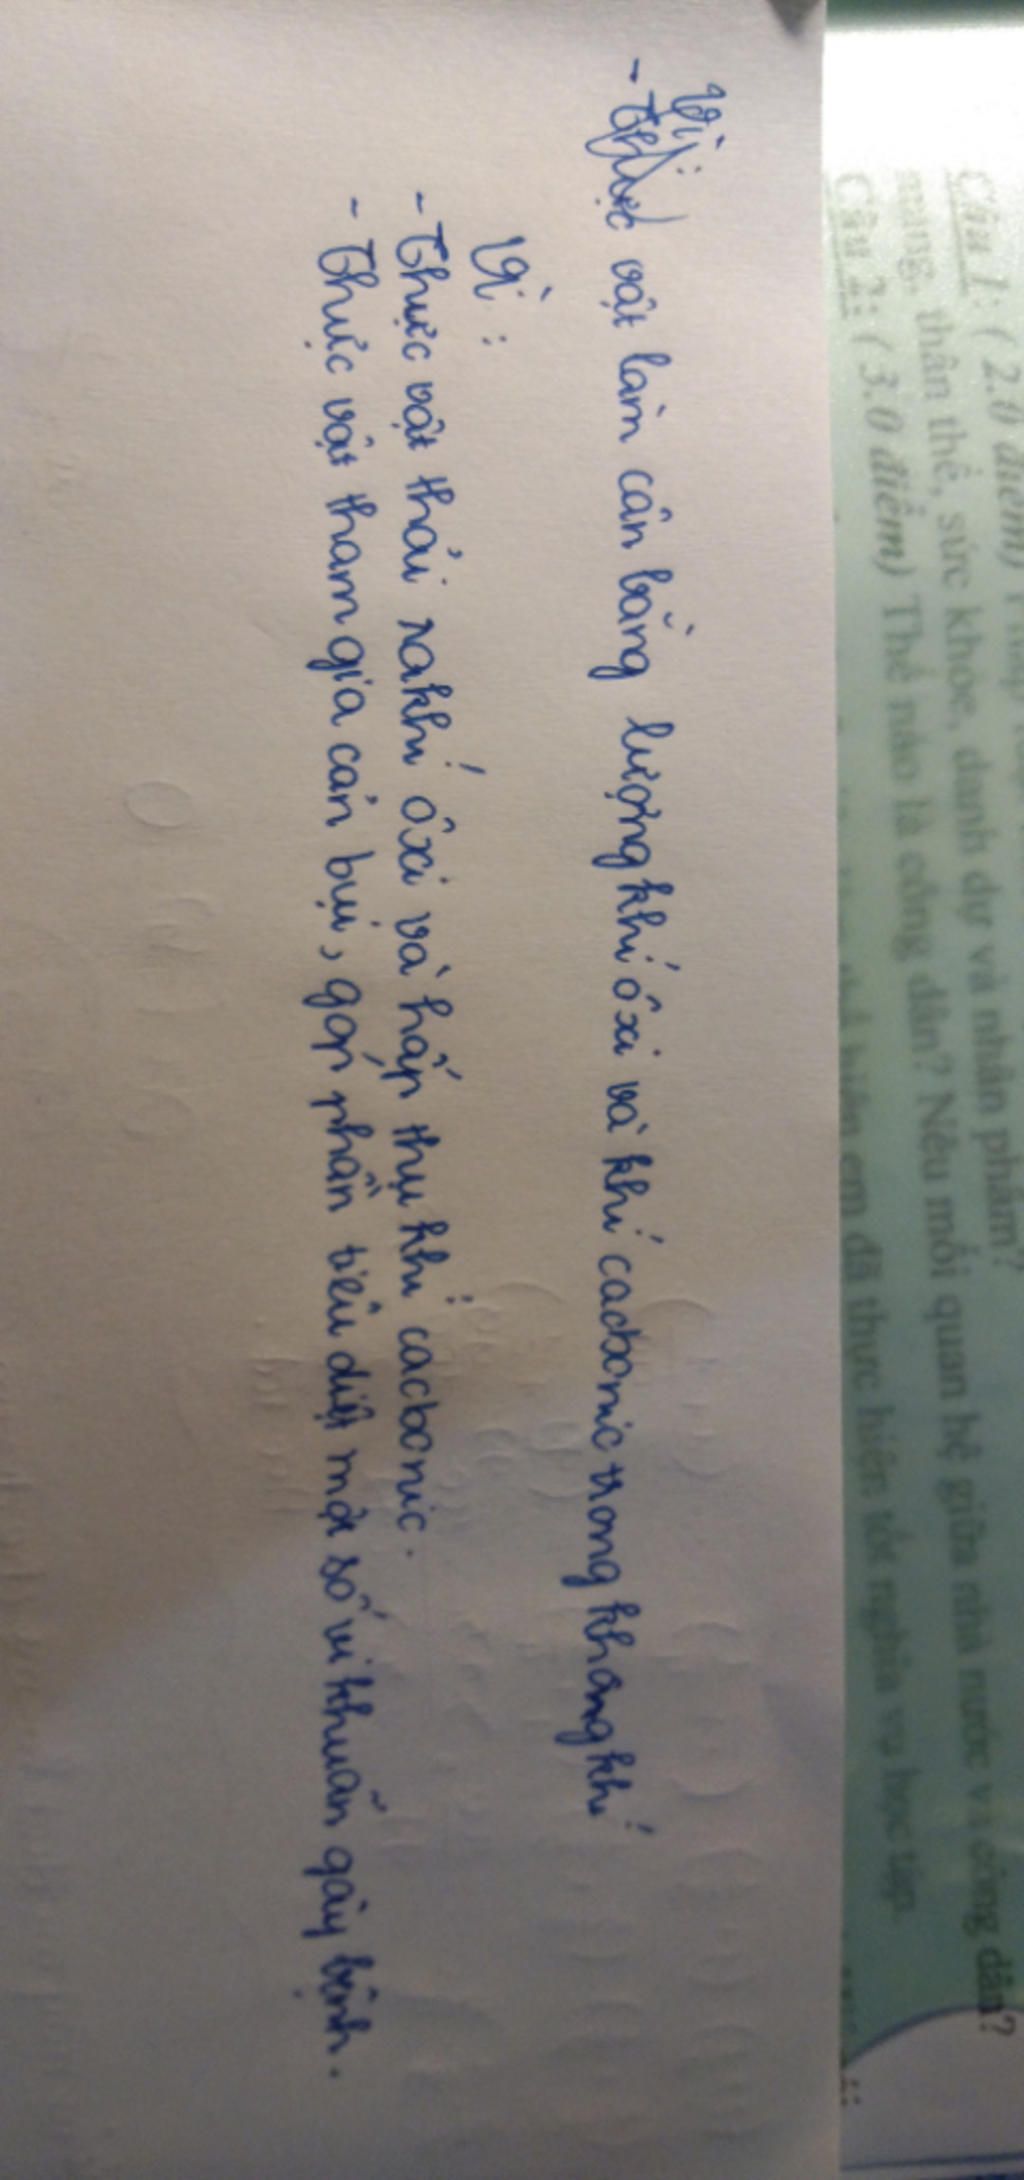 Câu 1: ( 2.0 điểm)
mạng, thân thể, sức khoẻ, danh dự và nhân phẩm?
Câu 2: ( 3.0 điểm) Thế nào là công dân? Nêu mối quan hệ giữa nhà nước và công dân?
em đã thực hiện tốt nghĩa vụ học tập.
Vì:
- Thực vật làm cân bằng lượng khí ôxi và khí cacbonic trong không khí
Vì:
- Thực vật thải ra khí ôxi và hấp thụ khí cacbonic.
- Thực vật tham gia cản bụi, góp phần tiêu diệt một số vi khuẩn gây bệnh.